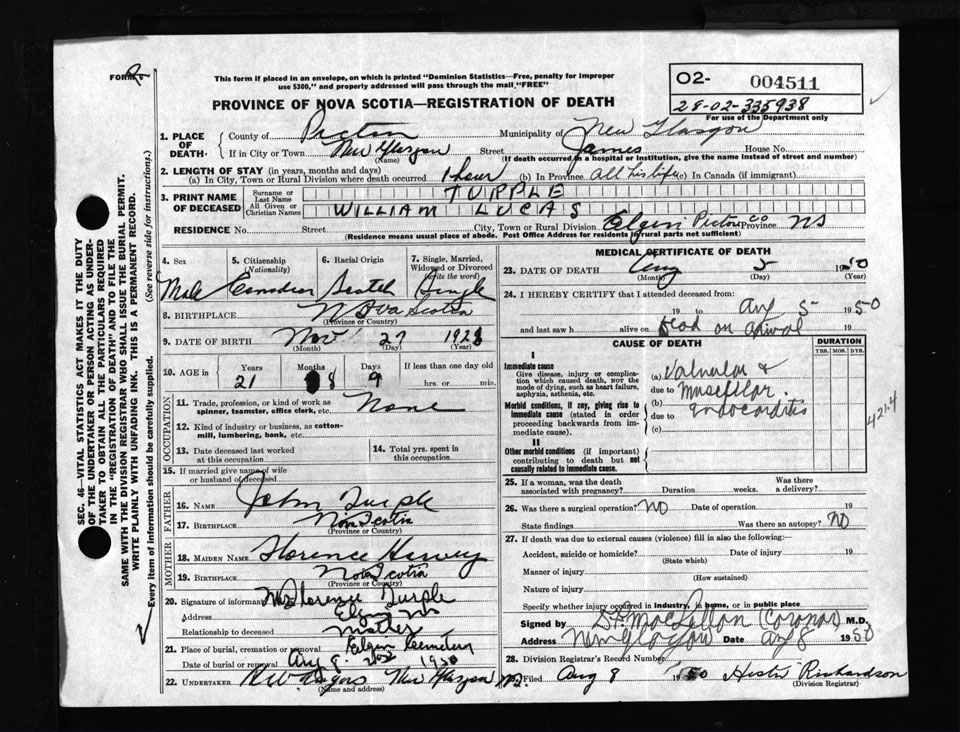 FORM 6
This form if placed in an envelope, on which is printed "Dominion Statistics—Free, penalty for improper
use $300," and properly addressed will pass through the mail "FREE"
PROVINCE OF NOVA SCOTIA—REGISTRATION OF DEATH
O2- 004511
28-02-335938
For use of the Department only
1. PLACE OF DEATH: County of Pictou Municipality of New Glasgow
If in City or Town New Glasgow Street James House No.
(Name) (If death occurred in a hospital or institution, give the name instead of street and number)
2. LENGTH OF STAY (in years, months and days)
(a) In City, Town or Rural Division where death occurred 1 hour (b) In Province all his life (c) In Canada (if immigrant)
3. PRINT NAME OF DECEASED Surname or Last Name TURPLE
All Given or Christian Names WILLIAM LUCAS
RESIDENCE No. Street City, Town or Rural Division Elgin Pictou Co Province NS
(Residence means usual place of abode. Post Office Address for residents in rural parts not sufficient)
4. Sex Male
5. Citizenship (Nationality) Canadian
6. Racial Origin Scotch
7. Single, Married, Widowed or Divorced (write the word) Single
8. BIRTHPLACE Nova Scotia
(Province or Country)
9. DATE OF BIRTH Nov 27 1928
(Month) (Day) (Year)
10. AGE in Years 21 Months 8 Days 9 If less than one day old
hrs. or min.
OCCUPATION
11. Trade, profession, or kind of work as
spinner, teamster, office clerk, etc. None
12. Kind of industry or business, as cotton-
mill, lumbering, bank, etc.
13. Date deceased last worked
at this occupation
14. Total yrs. spent in
this occupation
15. If married give name of wife
or husband of deceased
FATHER
16. Name John Turple
17. Birthplace Nova Scotia
(Province or Country)
MOTHER
18. Maiden Name Florence Harvey
19. Birthplace Nova Scotia
(Province or Country)
20. Signature of informant Mrs Florence Turple
Address Elgin NS
Relationship to deceased Mother
21. Place of burial, cremation or removal Elgin Cemetery
Date of burial or removal Aug 8 1950
22. UNDERTAKER New Glasgow
(Name and address)
MEDICAL CERTIFICATE OF DEATH
23. DATE OF DEATH Aug 5 1950
(Month) (Day)
24. I HEREBY CERTIFY that I attended deceased from:
19 to Aug 5 1950
and last saw h alive on dead on arrival 19
CAUSE OF DEATH
DURATION
YRS. MOS. DYS.
I
Immediate cause
Give disease, injury or compli-
cation which caused death, NOT the
mode of dying, such as heart failure,
asphyxia, asthenia, etc.
Morbid conditions, if any, giving rise to
immediate cause (stated in order
proceeding backwards from im-
mediate cause).
II
Other morbid conditions (if important)
contributing to death but not
causally related to immediate cause.
(a) Valvular &
due to
(b)
due to endocarditis
(c)
421.4
25. If a woman, was the death
associated with pregnancy? Duration weeks. Was there
a delivery?
26. Was there a surgical operation? NO Date of operation 19
State findings Was there an autopsy? NO
27. If death was due to external causes (violence) fill in also the following:
Accident, suicide or homicide? Date of injury 19
(State which)
Manner of injury
(How sustained)
Nature of injury
Specify whether injury occurred in industry, in home, or in public place
Signed by MacLellan (Coroner) M.D.
Address New Glasgow Date Aug 8 1950
28. Division Registrar's Record Number
Filed Aug 8 1950 Hester Richardson
(Division Registrar)
SEC. 46—VITAL STATISTICS ACT MAKES IT THE DUTY
OF THE UNDERTAKER OR PERSON ACTING AS UNDER-
TAKER TO OBTAIN ALL THE PARTICULARS REQUIRED
IN THE "REGISTRATION OF DEATH" AND TO FILE THE
SAME WITH THE DIVISION REGISTRAR WHO SHALL ISSUE THE BURIAL PERMIT.
WRITE PLAINLY WITH UNFADING INK. THIS IS A PERMANENT RECORD.
Every item of information should be carefully supplied. (See reverse side for instructions.)